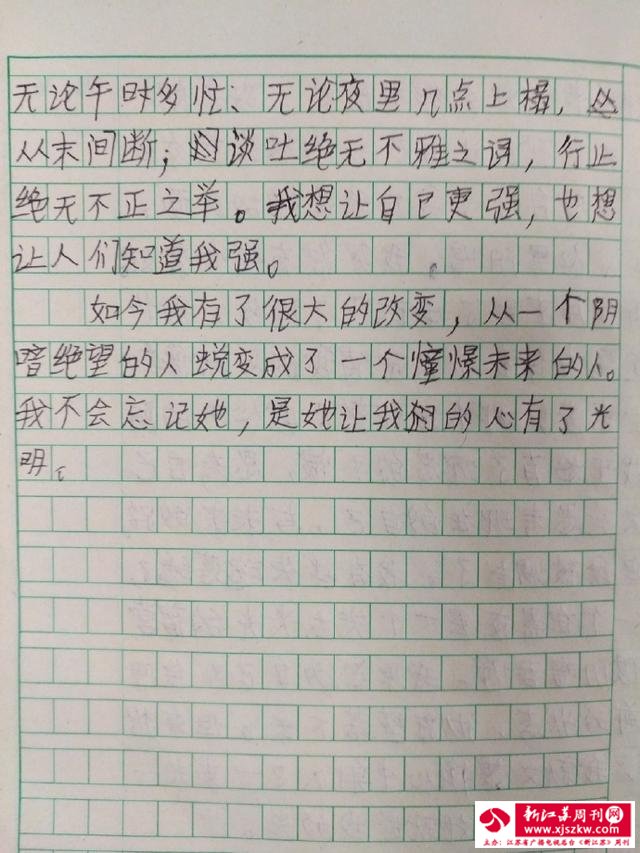 无论午时多忙、无论夜里几点上榻，
从未间断；谈吐绝无不雅之词，行止
绝无不正之举。我想让自己更强，也想
让人们知道我强。
如今我有了很大的改变，从一个阴
暗绝望的人蜕变成了一个憧憬未来的人。
我不会忘记她，是她让我的心有了光
明。
新江苏周刊网
www.xjszkw.com
主办：江苏省广播电视总台《新江苏》周刊